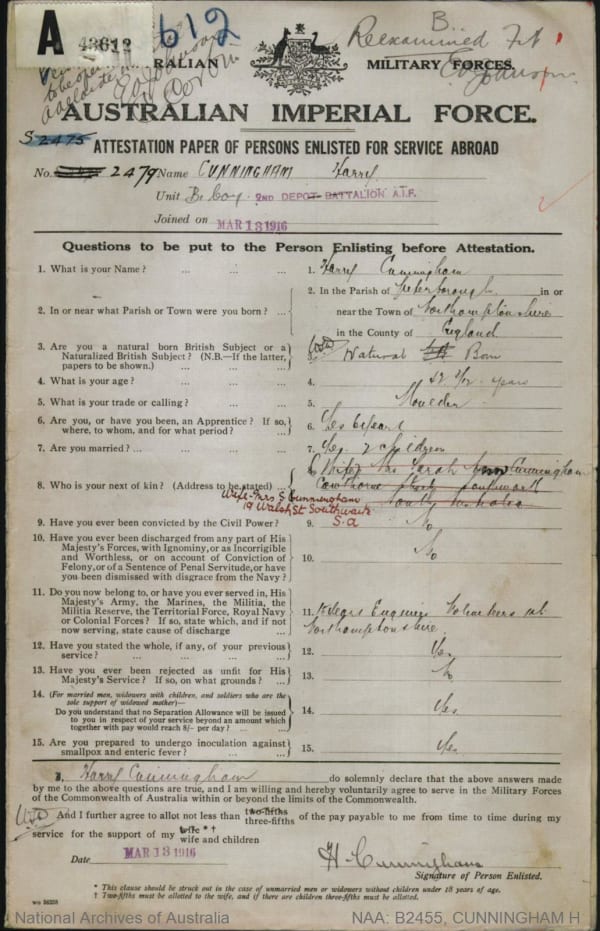 A
43612
612
B.
Reexamined Fit
RALIAN MILITARY FORCES.
AUSTRALIAN IMPERIAL FORCE.
S 2475
ATTESTATION PAPER OF PERSONS ENLISTED FOR SERVICE ABROAD
No. 2479 Name CUNNINGHAM Harry
Unit B. Coy. 2ND DEPOT BATTALION A.I.F.
Joined on MAR 13 1916
Questions to be put to the Person Enlisting before Attestation.
1. What is your Name? ... ... ... 1. Harry Cunningham
2. In or near what Parish or Town were you born? ... 2. In the Parish of Peterborough in or
near the Town of Northamptonshire
in the County of England
3. Are you a natural born British Subject or a Naturalized British Subject? (N.B.—If the latter, papers to be shown.) ... 3. Natural Born
4. What is your age? ... ... ... 4. 42 years
5. What is your trade or calling? ... ... 5. Moulder
6. Are you, or have you been, an Apprentice? If so, where, to whom, and for what period? ... 6. Yes 6 years
7. Are you married? ... ... ... 7. Yes. 2 children
8. Who is your next of kin? (Address to be stated) ... 8. Wife Mrs Sarah Ann Cunningham
Southwark
South Australia
Wife- Mrs S Cunningham
19 Walsh St Southwark
S.a
9. Have you ever been convicted by the Civil Power? 9. No
10. Have you ever been discharged from any part of His Majesty's Forces, with Ignominy, or as Incorrigible and Worthless, or on account of Conviction of Felony, or of a Sentence of Penal Servitude, or have you been dismissed with disgrace from the Navy? 10. No
11. Do you now belong to, or have you ever served in, His Majesty's Army, the Marines, the Militia, the Militia Reserve, the Territorial Force, Royal Navy or Colonial Forces? If so, state which, and if not now serving, state cause of discharge ... 11. Years Volunteers
Northamptonshire
12. Have you stated the whole, if any, of your previous service? ... 12. Yes
13. Have you ever been rejected as unfit for His Majesty's Service? If so, on what grounds? ... 13. No
14. (For married men, widowers with children, and soldiers who are the sole support of widowed mother)—
Do you understand that no Separation Allowance will be issued to you in respect of your service beyond an amount which together with pay would reach 8/- per day? ... 14. Yes
15. Are you prepared to undergo inoculation against smallpox and enteric fever? ... 15. Yes
I, Harry Cunningham do solemnly declare that the above answers made
by me to the above questions are true, and I am willing and hereby voluntarily agree to serve in the Military Forces
of the Commonwealth of Australia within or beyond the limits of the Commonwealth.
And I further agree to allot not less than two-fifths three-fifths of the pay payable to me from time to time during my
service for the support of my wife * † wife and children
Date MAR 13 1916 H. Cunningham
Signature of Person Enlisted.
* This clause should be struck out in the case of unmarried men or widowers without children under 18 years of age.
† Two-fifths must be allotted to the wife, and if there are children three-fifths must be allotted.
National Archives of Australia NAA: B2455, CUNNINGHAM H